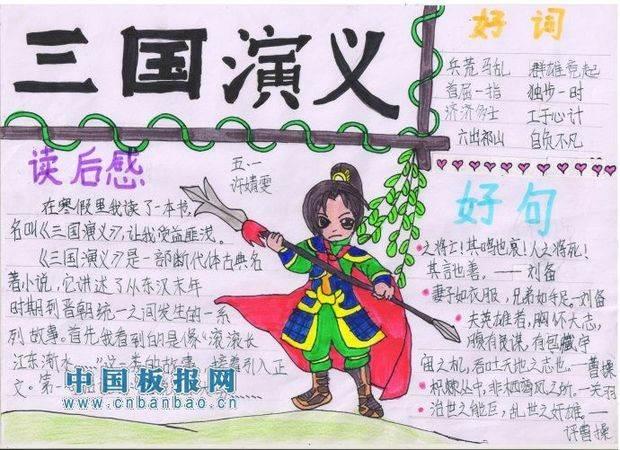 三国演义
好词
兵荒马乱 群雄竟起
首屈一指 独步一时
济济多士 工于心计
六出祁山 自负不凡
读后感
五.一
许婧雯
在寒假里我读了一本书,
名叫《三国演义》,让我受益匪浅。
《三国演义》是一部断代体古典名
著小说,它讲述了从东汉末年
时期到晋朝统一之间发生的一系
列故事。首先我看到的是(像"滚滚长
江东渐水 这一类的故事 接着引入正
文。第一
好句
之将士!其鸣也哀!人之将死!
其言也善。——刘备
妻子如衣服,兄弟如手足。刘备
夫英雄者,胸怀大志,
腹有良谋,有包藏宇
宙之机,吞吐天地之志也。—曹操
枳棘丛中,非栖鸾凤之所。—关羽
治世之能臣,乱世之奸雄。—
评曹操
中国板报网
www.cnbanbao.cn